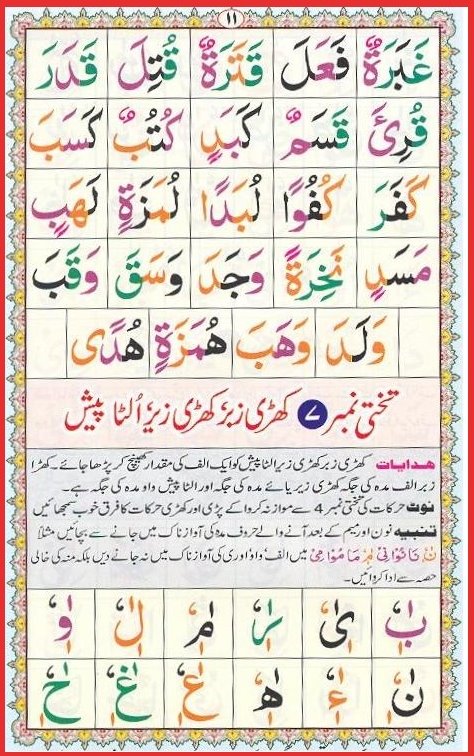 ١١
غَبَرَةٌ فَعَلَ قَتَرَةٌ قُتِلَ قَدَرَ
قُرِئَ قَسَمٌ كَبَدٍ كُتُبٌ كَسَبَ
كَفَرَ كُفُوًا لُبَدًا لُمَزَةٍ لَهَبٍ
مَسَدٍ نَخِرَةً وَجَدَ وَسَقَ وَقَبَ
وَلَدَ وَهَبَ هُمَزَةٍ هُدًى
تختی نمبر ۷ کھڑی زبر کھڑی زیر اُلٹا پیش
ھدایات کھڑی زبر کھڑی زیر الٹا پیش کو ایک الف کی مقدار کھینچ کر پڑھا جائے۔ کھڑا
زبر الف مدہ کی جگہ کھڑی زیر یائے مدہ کی جگہ اور الٹا پیش واو مدہ کی جگہ ہے۔
نوٹ حرکات کی تختی نمبر 4 سے موازنہ کروا کے پڑی اور کھڑی حرکات کا فرق خوب سمجھائیں
تنبیہ نون اور میم کے بعد آنے والے حروف مدہ کی آواز ناک میں جانے سے بچائیں مثلاً
نٰ نَا نُوْا نِیْ مٰ مَا مُوْا مِیْ میں الف واؤ اور ی کی آواز ناک میں نہ جانے دیں بلکہ منہ کی خالی
حصہ سے ادا کروائیں۔
بٰٖٗ یٰٖٗ رٰٖٗ مٰٖٗ لٰٖٗ وٰٖٗ
نٰٖٗ ءٰٖٗ هٰٖٗ عٰٖٗ غٰٖٗ حٰٖٗ